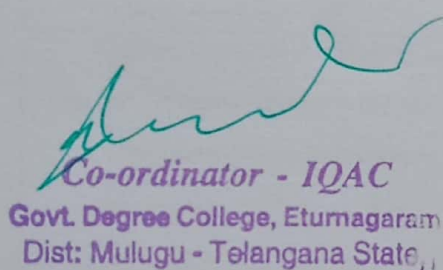 Co-ordinator - IQAC
Govt. Degree College, Eturnagaram
Dist: Mulugu - Telangana State,